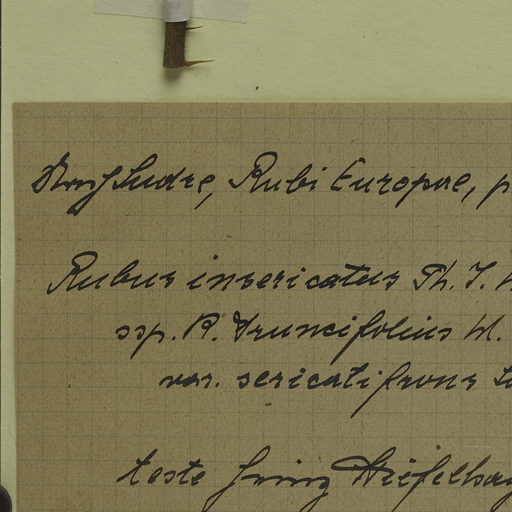 Nach Sudre, Rubi Europae, p
Rubus insericatus Ph. J. M
ssp. R. truncifolius M.
var. sericatifrons Su
teste